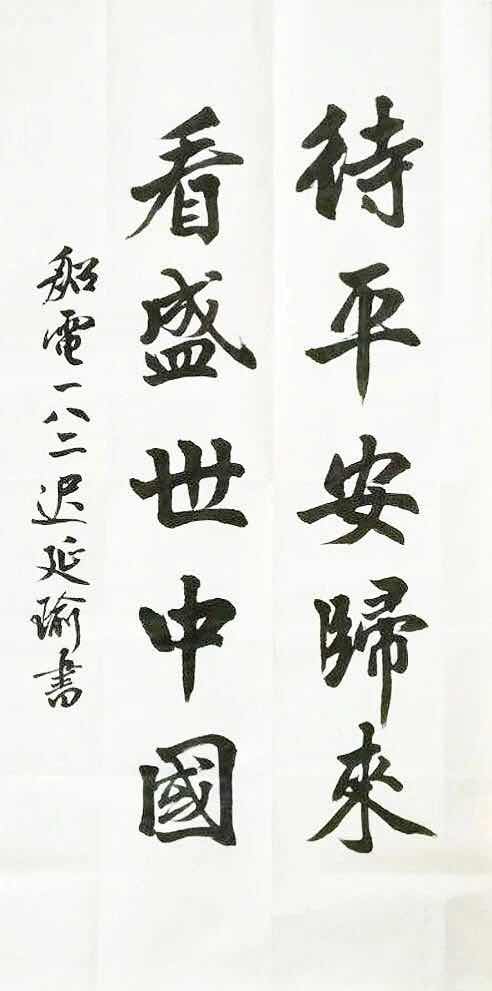 待平安歸來
看盛世中國
船電一八二遲延瑜書